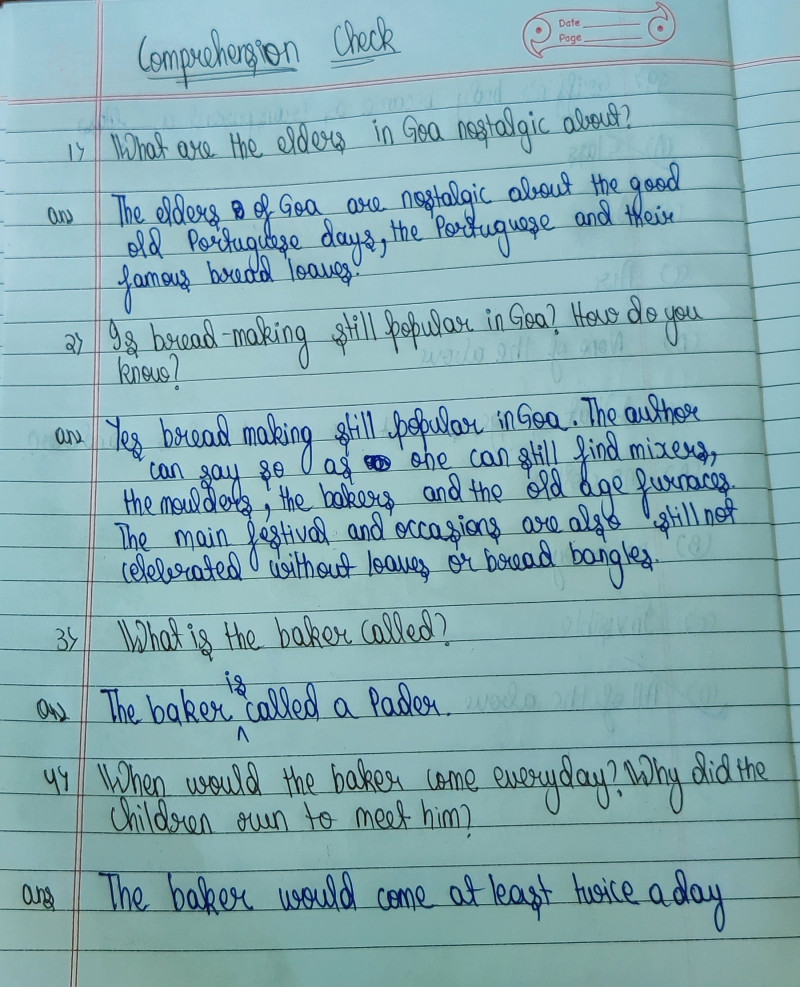 Date
Page
Comprehension Check
1) What are the elders in Goa nostalgic about?
ans The elders of Goa are nostalgic about the good
old Portuguese days, the Portuguese and their
famous bread loaves.
2) Is bread-making still popular in Goa? How do you
know?
ans Yes bread making still popular in Goa. The author
can say so as one can still find mixers,
the moulders, the bakers and the old age furnaces.
The main festival and occasions are also still not
celebrated without loaves or bread bangles.
3) What is the baker called?
ans The baker is called a Pader.
4) When would the baker come everyday? Why did the
children run to meet him?
ans The baker would come at least twice a day